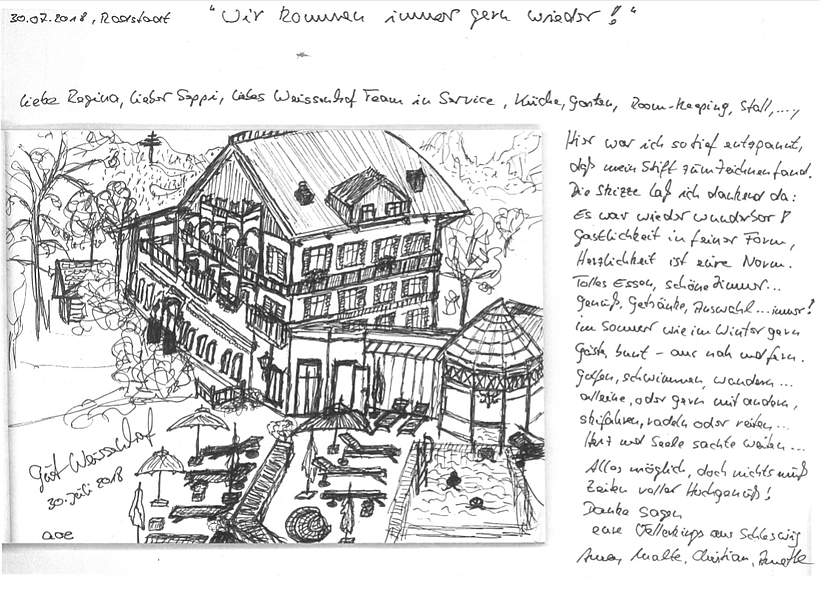 30.07.2018, Radstadt "Wir kommen immer gern wieder!"
Liebe Regina, lieber Seppi, liebes Weissenhof Team in Service, Küche, Garten, Room-Keeping, Stall, ...,
Hier war ich so tief entspannt,
daß mein Stift zum Zeichnen fand.
Die Skizze laß ich dankend da:
Es war wieder wunderbar!
Gastlichkeit in feiner Form,
Herzlichkeit ist eure Norm.
Tolles Essen, schöne Zimmer...
Genuß, Getränke, Auswahl...immer!
Im Sommer wie im Winter gern
Gäste, bunt - aus nah und fern.
Golfen, schwimmen, wandern...
alleine, oder gern mit andern,
skifahren, radeln oder reiten...
Herz und Seele sachte weiten...
Alles möglich, doch nichts muß
Zeiten voller Hochgenuß!
Danke sagen
eure aus Schleswig
Malte, Christian,
Gut Weissenhof
30. Juli 2018
aoe